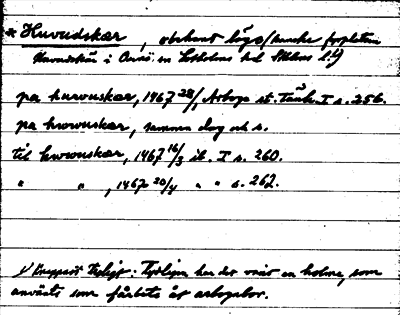 * Huvudskär, obekant läge/kanske förställen
Huvudskär i Ornö sn Sotholms hd Sthlms l.?)
pa huruuskær, 1467 28/1 Arboga st. Tänk. I s. 256.
pa hwwuskær, samma dag och s.
til hwwuskær, 1467 16/3 ib. I s. 260.
" " , 1467 20/4 " " s. 262.
1) Knappast troligt: Tydligen har det varit en holme, som
använts som fårbete åt arbogabor.